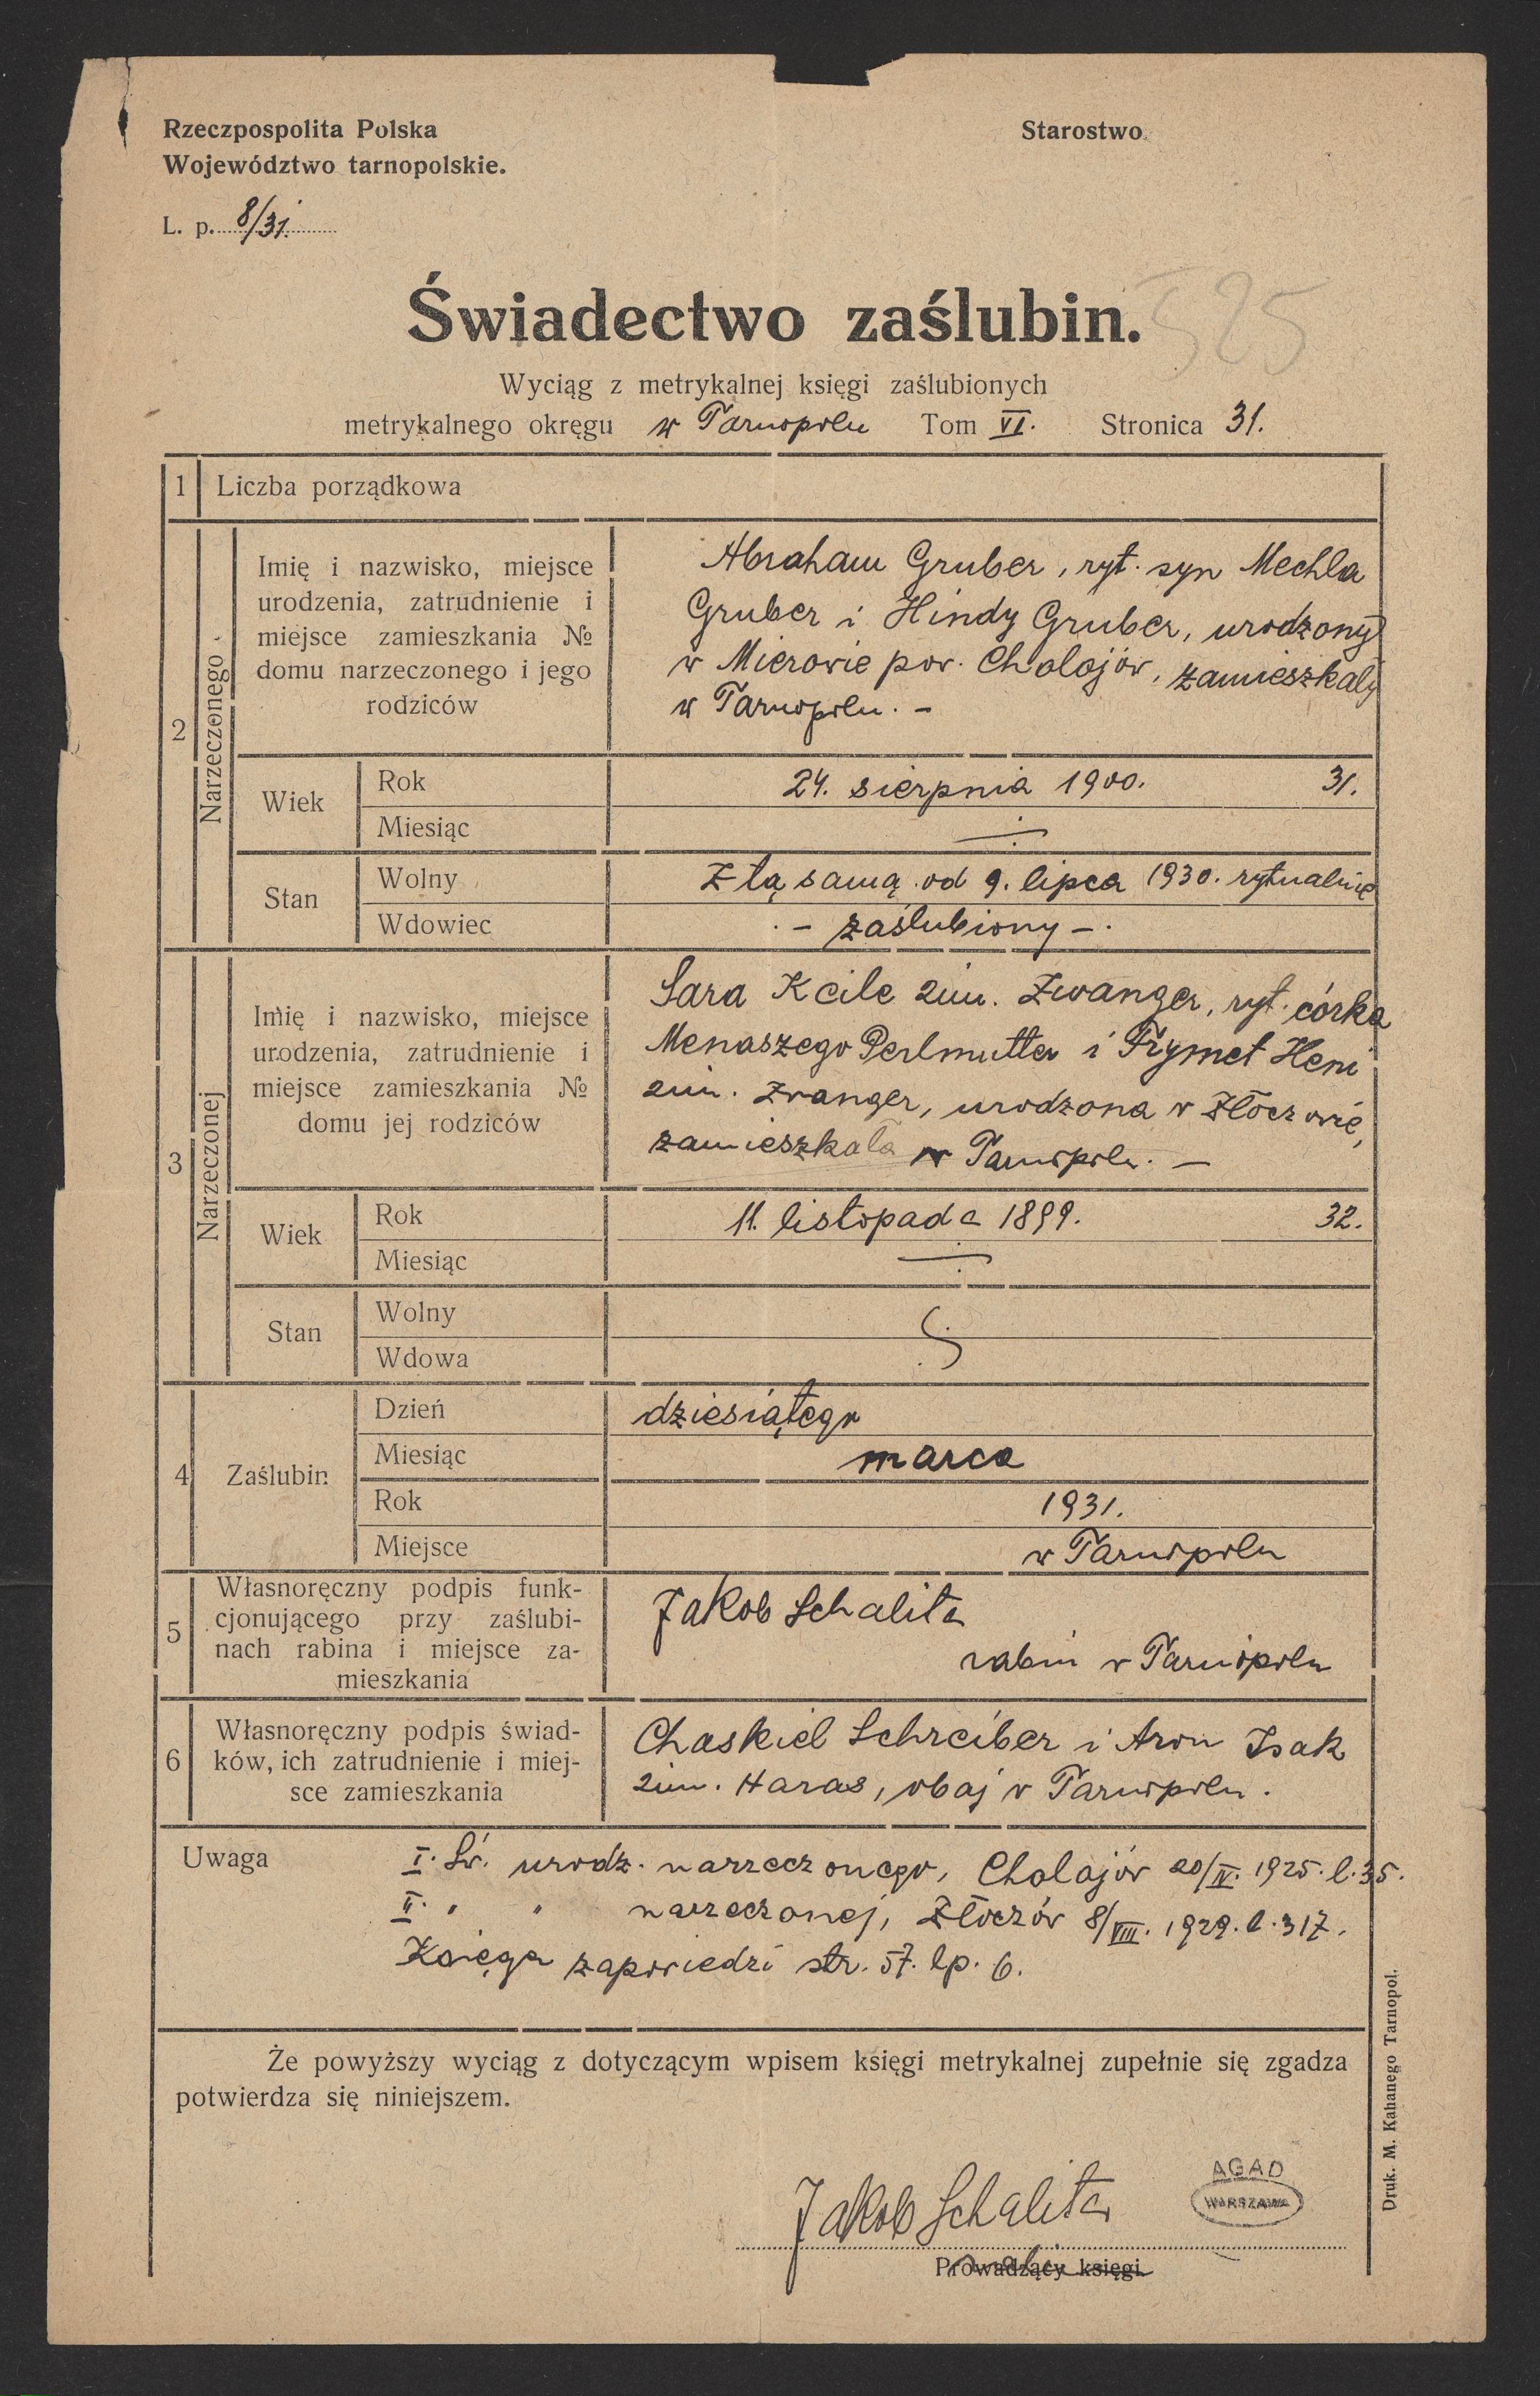 Rzeczpospolita Polska
Starostwo
Województwo tarnopolskie.
L. p. 8/31.
Świadectwo zaślubin.
525
Wyciąg z metrykalnej księgi zaślubionych
metrykalnego okręgu w Tarnopolu Tom VI. Stronica 31.
1 Liczba porządkowa
2
Narzeczonego
Imię i nazwisko, miejsce
urodzenia, zatrudnienie i
miejsce zamieszkania №
domu narzeczonego i jego
rodziców
Abraham Gruber, ryt. syn Mechla
Gruber i Hindy Gruber, urodzony
w Mierowie pow. Cholojów, zamieszkały
w Tarnopolu. –
Wiek
Rok
24. sierpnia 1900. 31.
Miesiąc
Stan
Wolny
Z tą samą od 9. lipca 1930. rytualnie
Wdowiec
– zaślubiony –.
3
Narzeczonej
Imię i nazwisko, miejsce
urodzenia, zatrudnienie i
miejsce zamieszkania №
domu jej rodziców
Sara Keile 2im. Zwanger, ryt. córka
Menaszego Perlmutter i Frymet Heni
2im. Zwanger, urodzona w Złoczowie,
zamieszkała w Tarnopolu. –
Wiek
Rok
11. listopada 1899. 32.
Miesiąc
Stan
Wolny
Wdowa
4
Zaślubin
Dzień
dziesiątego
Miesiąc
marca
Rok
1931.
Miejsce
w Tarnopolu
5
Własnoręczny podpis funk-
cjonującego przy zaślubi-
nach rabina i miejsce za-
mieszkania
Jakob Schalita
rabin w Tarnopolu
6
Własnoręczny podpis świad-
ków, ich zatrudnienie i miej-
sce zamieszkania
Chaskiel Schreiber i Aron Isak
2im. Haras, obaj w Tarnopolu.
Uwaga
I. Św. urodz. narzeczonego, Cholojów 20/IV. 1925. l. 35.
II. " " narzeczonej, Złoczów 8/VIII. 1929. l. 317.
Księga zapowiedzi str. 57. lp. 6.
Że powyższy wyciąg z dotyczącym wpisem księgi metrykalnej zupełnie się zgadza
potwierdza się niniejszem.
Jakob Schalita
AGAD
WARSZAWA
Prowadzący księgi
Druk. M. Kahanego Tarnopol.